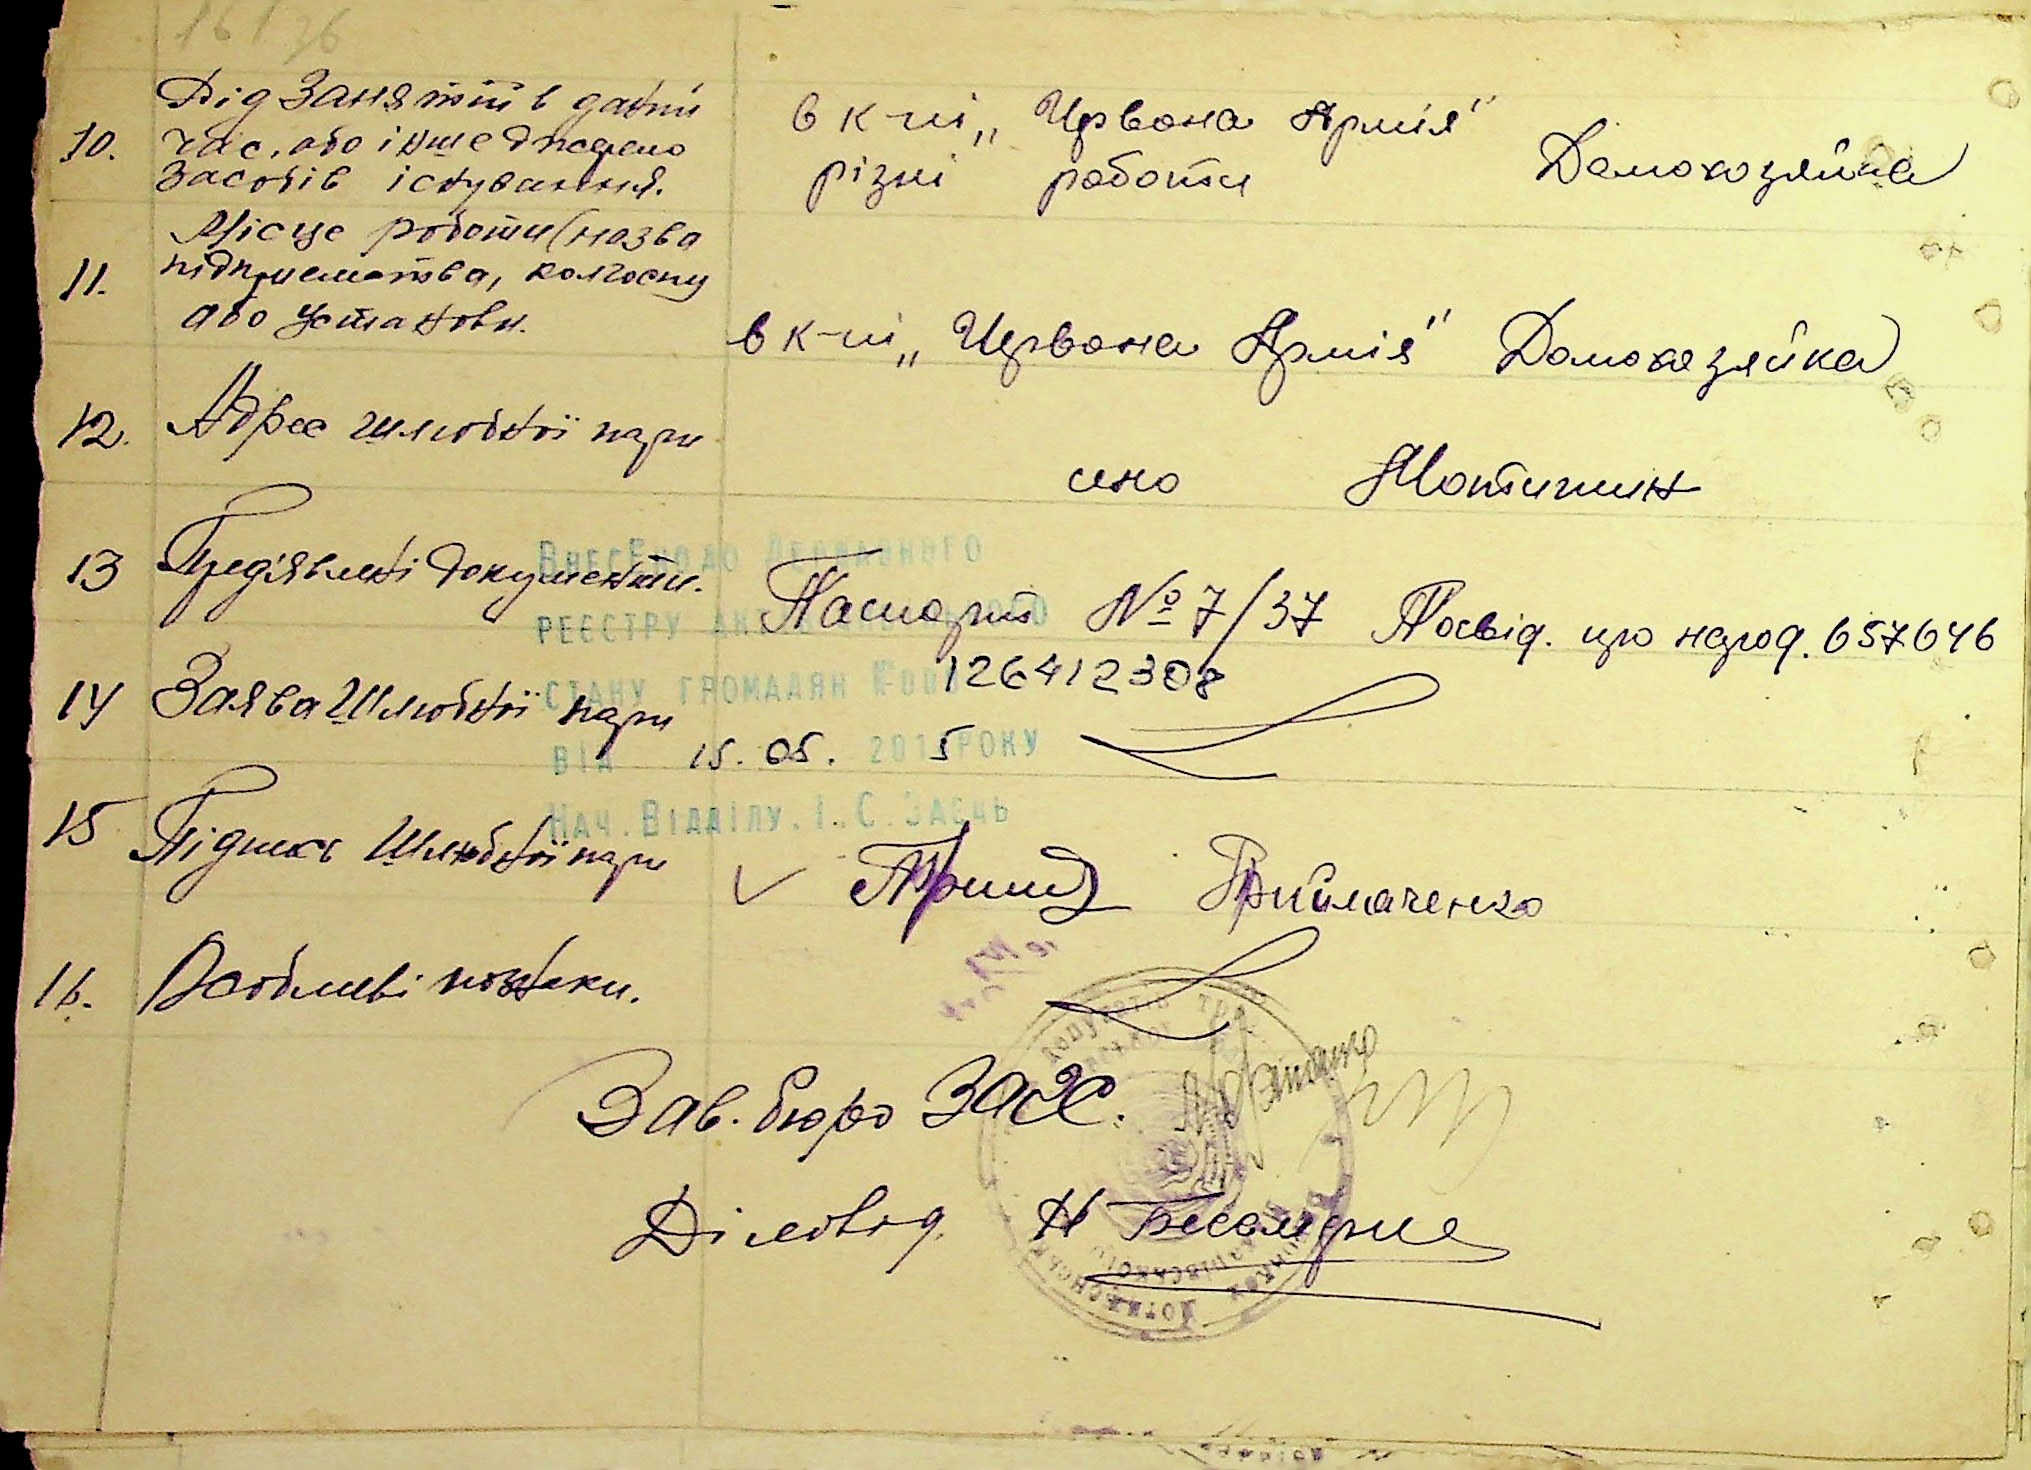 16/36
Від Занятій в даний
10. час, або інше джерело
Засобів існування.
в к-пі „Червона Армія"
різні роботи
Домохозяйка
Місце роботи (назва
11. підприємства, колгоспу
або установи.
в к-пі „Червона Армія" Домохазяйка
12. Адрес шлюбної пари
село Мотижин
13 Пред'явлені документи.
Паспорт № 7/37 Посвід. про народ. 657646
14 Заява Шлюбної пари
15 Підпись Шлюбної пари
Приймаченко
16. Особливі познаки.
Внесено до Державного
реєстру актів
стану громадян №000126412308
від 15.05. 2015 року
Нач. Відділу. І. С. Заєць
Зав. бюро ЗАГС.
Діловод. Н